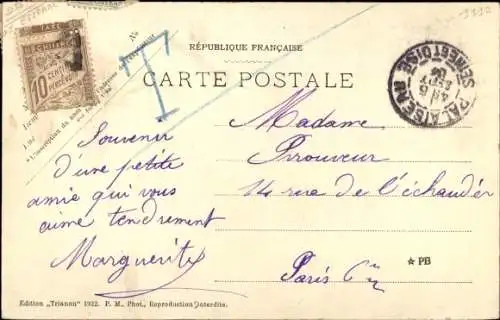 3330
TAXE
À PERCEVOIR
10
CENTIMES
T
RÉPUBLIQUE FRANÇAISE
CARTE POSTALE
PALAISEAU
SEINE ET OISE
6
SEPT
04
Souvenir
d'une petite
amie qui vous
aime tendrement
Marguerite
Madame
Prouveur
14 rue de l'échaudée
Paris 6
* PB
Edition „Trianon" 1922. P. M., Phot., Reproduction interdite.